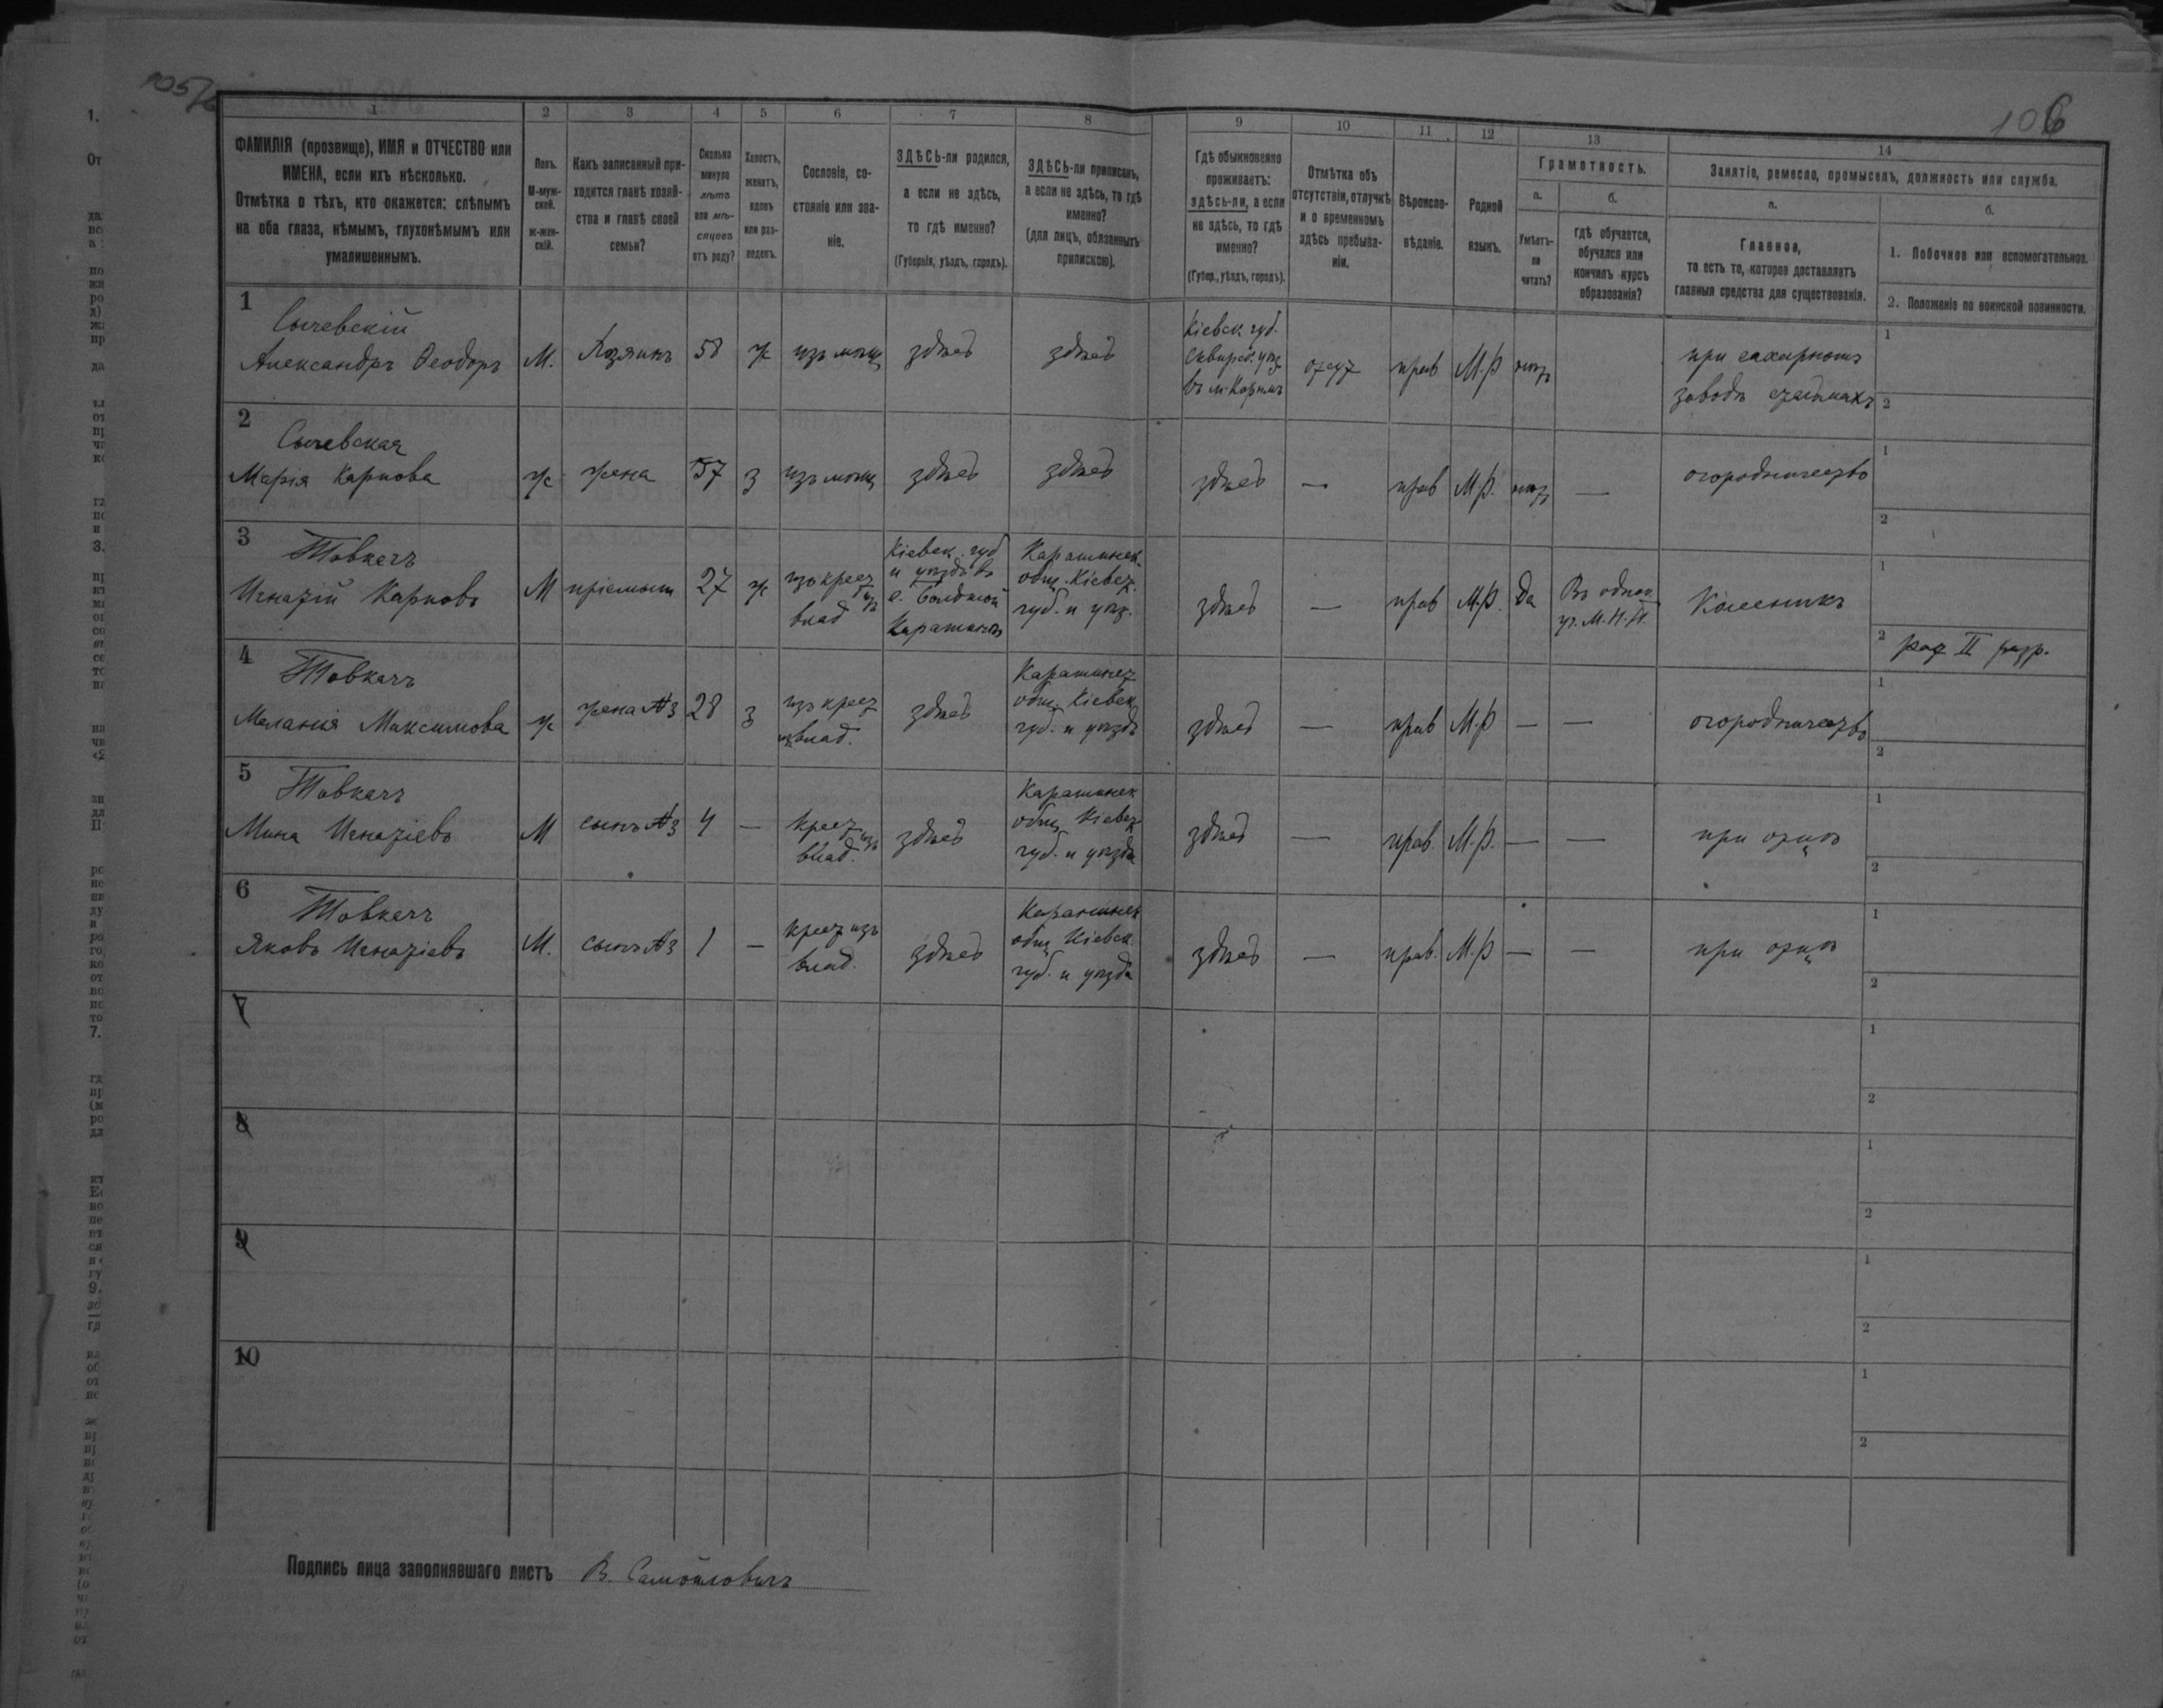 105/б
106
1
2
3
4
5
6
7
8
9
10
11
12
13
14
ФАМИЛІЯ (прозвище), ИМЯ и ОТЧЕСТВО или
ИМЕНА, если ихъ нѣсколько.
Отмѣтка о тѣхъ, кто окажется: слѣпымъ
на оба глаза, нѣмымъ, глухонѣмымъ или
умалишеннымъ.
Полъ.
М-муж-
ской.
ж-жен-
скій.
Какъ записанный при-
ходится главѣ хозяй-
ства и главѣ своей
семьи?
Сколько
минуло
лѣтъ
или мѣ-
сяцевъ
отъ роду?
Холостъ,
женатъ,
вдовъ
или раз-
веденъ.
Сословіе, со-
стояніе или зва-
ніе.
ЗДѢСЬ-ли родился,
а если не здѣсь,
то гдѣ именно?
(Губернія, уѣздъ, городъ).
ЗДѢСЬ-ли приписанъ,
а если не здѣсь, то гдѣ
именно?
(для лицъ, обязанныхъ
припискою).
Гдѣ обыкновенно
проживаетъ:
здѣсь-ли, а если
не здѣсь, то гдѣ
именно?
(Губер., уѣздъ, городъ).
Отмѣтка объ
отсутствіи, отлучкѣ
и о временномъ
здѣсь пребыва-
ніи.
Вѣроиспо-
вѣданіе.
Родной
языкъ.
Грамотность.
а.
Умѣетъ-
ли
читать?
б.
гдѣ обучается,
обучался или
кончилъ курсъ
образованія?
Занятіе, ремесло, промыселъ, должность или служба.
а.
Главное,
то есть то, которое доставляетъ
главныя средства для существованія.
б.
1. Побочное или вспомогательное.
2. Положеніе по воинской повинности.
1
Сычевскій
Александръ Ѳеодоръ
М.
Хозяинъ
58
ж
изъ мѣщ
здѣсь
здѣсь
Кіевск. губ.
Сквирск. уѣз.
въ м.
отсут
прав
М.Р
нѣтъ
при сахарномъ
заводѣ
1
2
2
Сычевская
Марія Карпова
ж
жена
57
з
изъ мѣщ
здѣсь
здѣсь
здѣсь
—
прав
М.Р.
нѣтъ
—
огородничество
1
2
3
Товкачъ
Игнатій Карповъ
М
пріемыш
27
ж
изъ крест
изъ
влад
Кіевск. губ
и уѣздъ въ
с. Большой
Каратинъ
общ. Кіевск.
губ. и уѣз.
здѣсь
—
прав
М.Р.
да
Въ однок
уч. М.Н.П.
Колесникъ
1
2 рат II разр.
4
Товкачъ
Меланія Максимова
ж
жена №3
28
з
изъ крест
изъ влад.
здѣсь
общ. Кіевск
губ. и уѣзда
здѣсь
—
прав
М.Р
—
—
огородничество
1
2
5
Товкачъ
Мина Игнатіевъ
М
сынъ №3
4
—
крест
изъ
влад.
здѣсь
общ Кіевск
губ. и уѣзда
здѣсь
—
прав.
М.Р.
—
—
при отцѣ
1
2
6
Товкачъ
Яковъ Игнатіевъ
М.
сынъ №3
1
—
крест изъ
влад.
здѣсь
общ Кіевск.
губ. и уѣзда
здѣсь
—
прав.
М.Р
—
—
при отцѣ
1
2
7
1
2
8
1
2
9
1
2
10
1
2
Подпись лица заполнявшаго листъ В. Самойловичъ